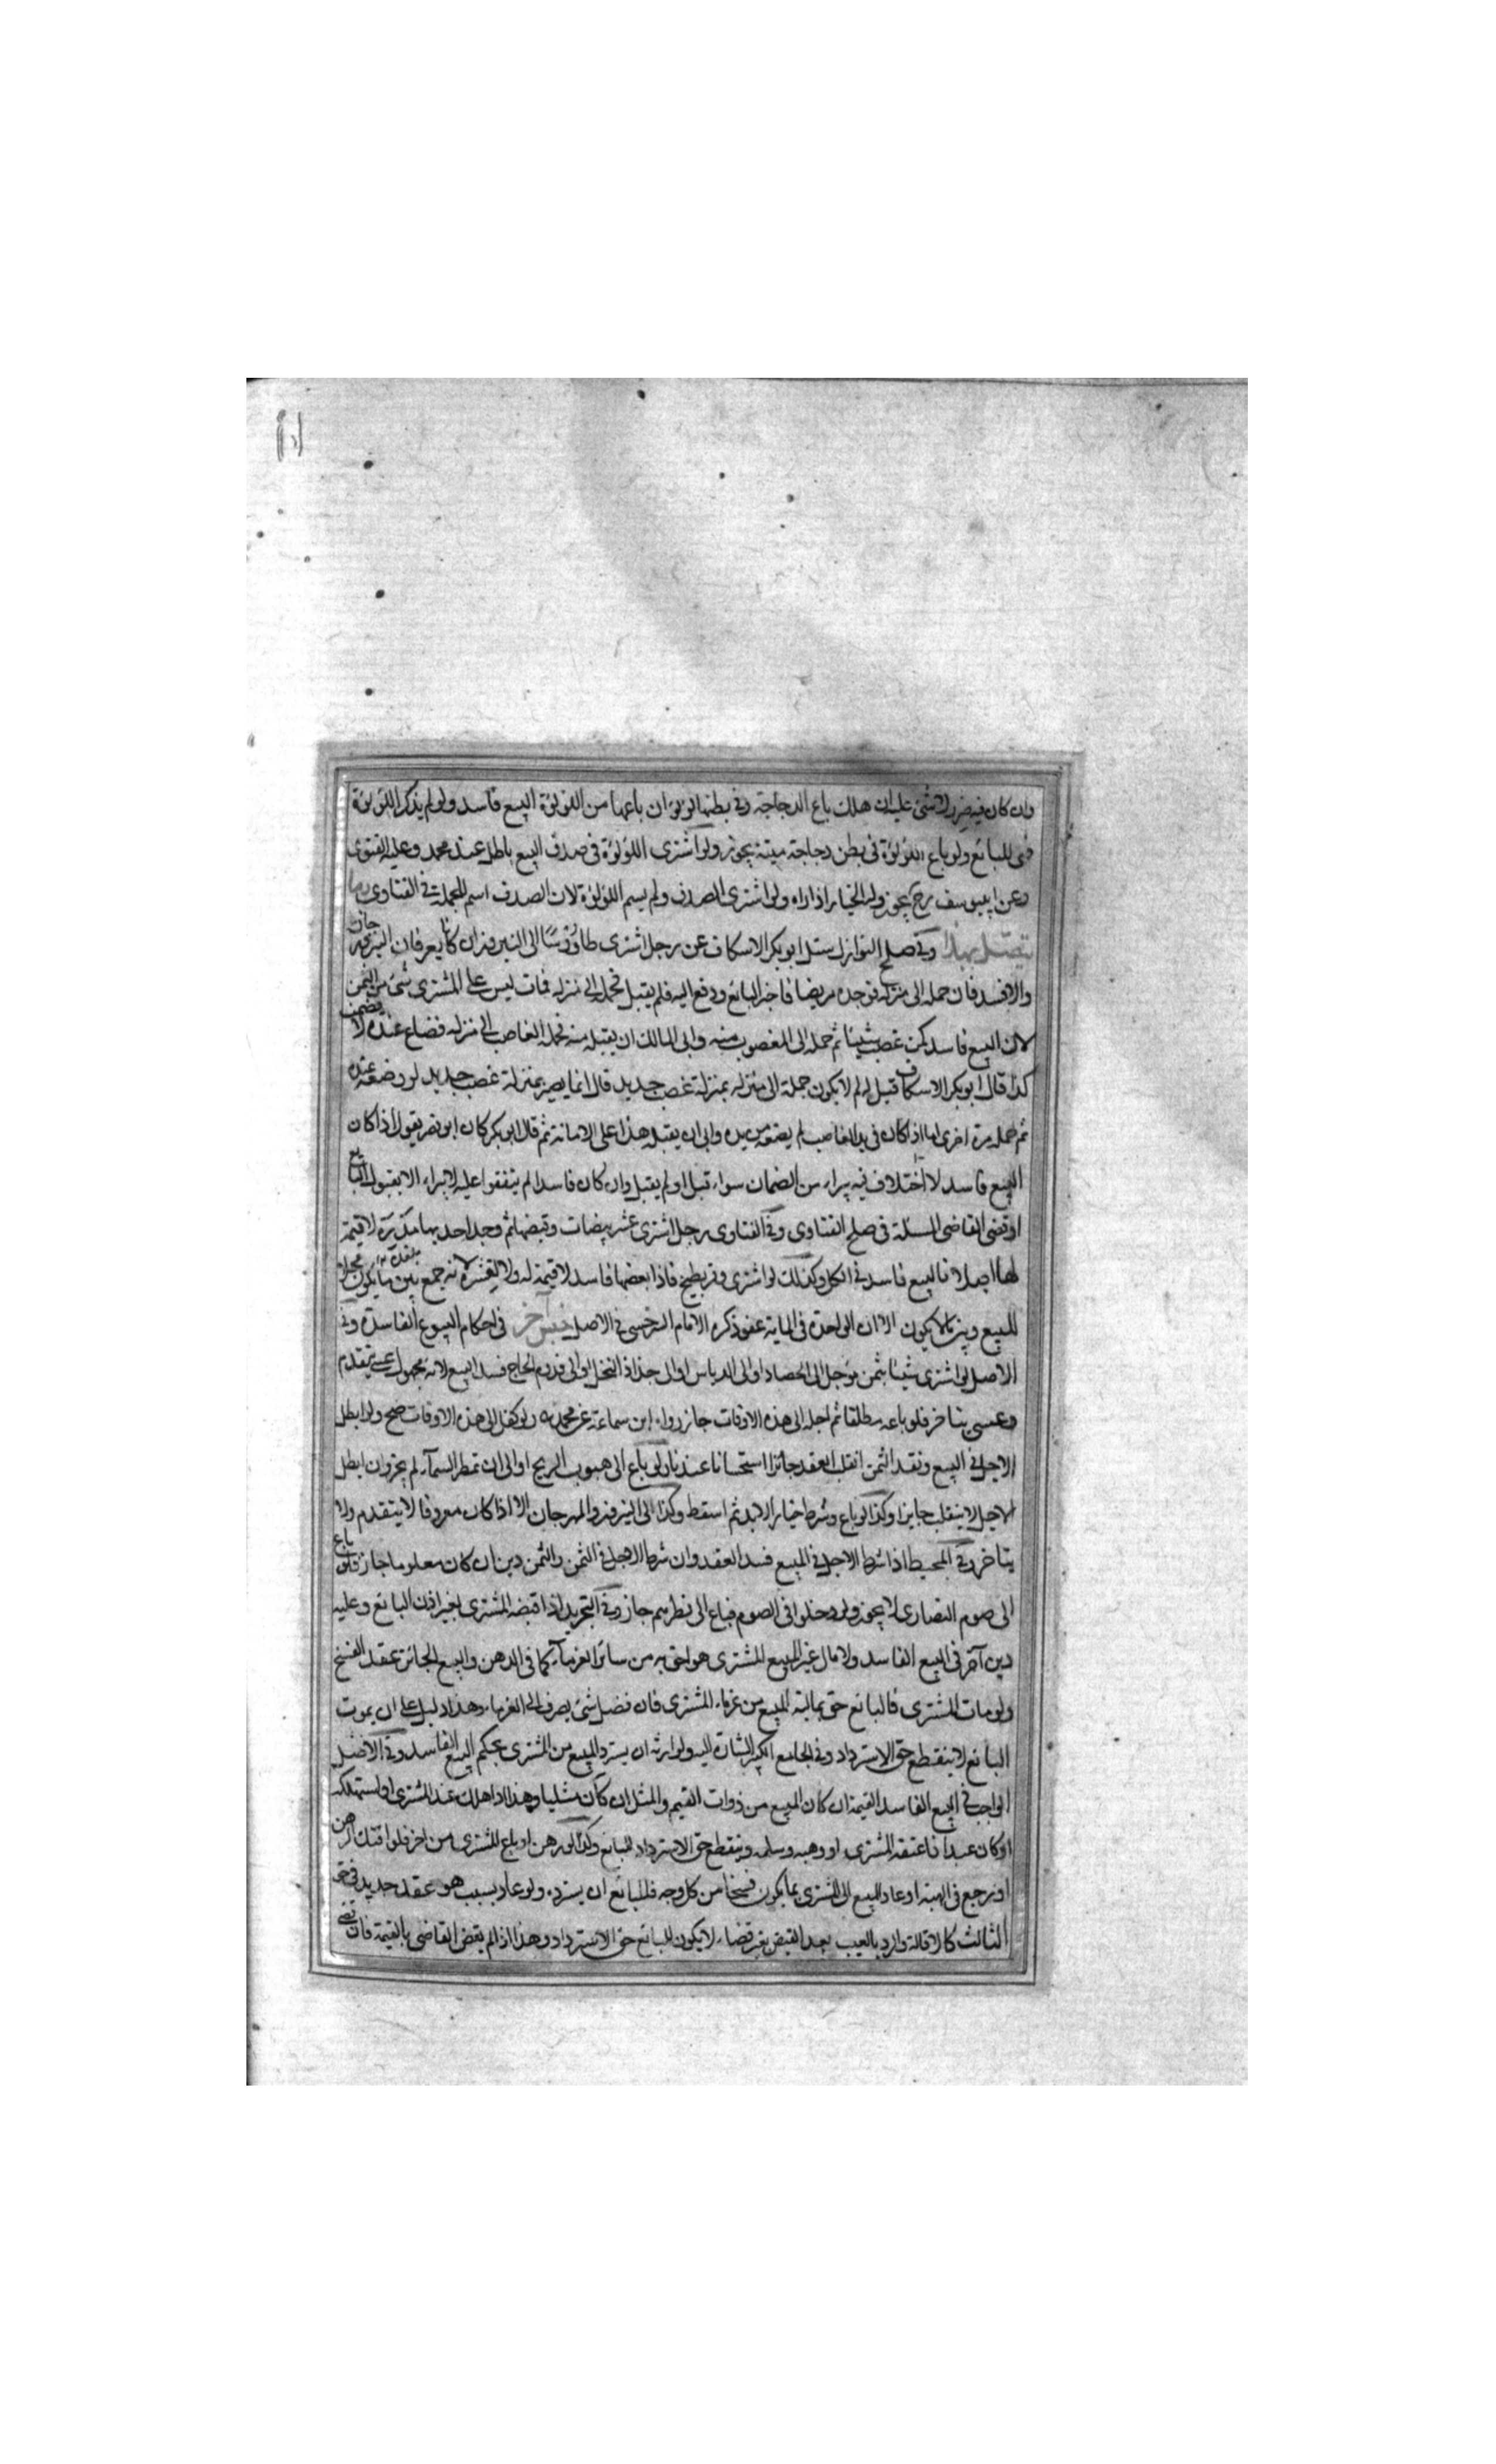 وان كان فيه ضرر لا شئ عليه ان هلك باع الدجاجة وفى بطنها لؤلؤ ان باعها من اللؤلؤة البيع فاسد ولو لم يذكر اللؤلؤة
فهى للبائع ولو باع اللؤلؤة فى بطن دجاجة ميتة يجوز ولو اشترى اللؤلؤة فى صدف البيع باطل عند محمد وعليه الفتوى
وعن ابى يوسف رح يجوز وله الخيار اذا راه ولو اشترى الصدف ولم يسم اللؤلؤة لان الصدف اسم للجملة فى الفتاوى
يتصل بهذا وفى صلح النوازل سئل ابو بكر الاسكاف عن رجل اشترى طاؤسا الى النيروز ان كانا يعرفان النيروز جاز
والا فسد فان حمله الى منزله فوجده مريضا فاخبر البائع ودفع اليه فلم يقبل فحمله الى منزله فمات ليس على المشترى شئ من الثمن
لان البيع فاسد كمن غصب شيئا ثم حمله الى المغصوب منه وابى المالك ان يقبله منه فحمله الغاصب الى منزله فضاع عنده لا يضمن
كذا قال ابو بكر الاسكاف قيل له لم لا يكون حمله الى منزله بمنزلة غصب جديد قال انما يصير بمنزلة غصب جديد لو وضعه عنده
ثم حمله مرة اخرى اما اذا كان فى يد الغاصب لم يضعه من يده وابى ان يقبله هذا على الامانة ثم قال ابو بكر كان ابو نصر يقول اذا كان
البيع فاسد لا اختلاف فيه يبراء من الضمان سواء قبل او لم يقبل وان كان فاسدا لم يتفقوا عليه لا يبراء الا بقبول البائع
او قضى القاضى المسئلة فى صلح الفتاوى وفى الفتاوى رجل اشترى عشر بيضات وقبضها ثم وجد احديها مذرة لا قيمة
لها اصلا فالبيع فاسد فى الكل وكذلك لو اشترى وقر بطيخ فاذا بعضها فاسد لا قيمة له ولا لقشره لانه جمع بين ما يكون محلا
للبيع وبين ما لا يكون الا ان الواحدة فى الماية عفو ذكره الامام السرخسى فى الاصل جنس آخر فى احكام البيوع الفاسدة وفى
الاصل لو اشترى شيئا بثمن مؤجل الى الحصاد او الى الدياس او الى جذاذ النخل او الى قدوم الحاج فسد البيع لانه مجهول عسى يتقدم
وعسى يتاخر فلو باعه مطلقا ثم اجله الى هذه الاوقات جاز رواه ابن سماعة عن محمد ولو كفل الى هذه الاوقات صح ولو ابطل
الاجل فى البيع ونقد الثمن انقلب العقد جائزا استحسانا عندنا ولو باع الى هبوب الريح او الى ان تمطر السماء لم يجز وان ابطل
الاجل لا ينقلب جايزا وكذا لو باع وشرط خيار الابد ثم اسقط وكذا الى النيروز والمهرجان الا اذا كان معروفا لا يتقدم ولا
يتاخر وفى المحيط اذا شرط الاجل فى المبيع فسد العقد وان شرط الاجل فى الثمن والثمن دين ان كان معلوما جاز فلو باع
الى صوم النصارى لا يجوز ولو دخلوا فى الصوم فباع الى فطرهم جاز وفى التجريد اذا قبضه المشترى بغير اذن البائع وعليه
دين آخر فى البيع الفاسد ولا مال غير المبيع للمشترى هو احق به من سائر الغرماء كما فى الرهن والبيع الجائز عقد الفسخ
ولو مات المشترى فالبائع حق بمالية المبيع من غرماء المشترى فان فضل شئ يصرف الى الغرماء وهذا دليل على ان بموت
البائع لا ينقطع حق الاسترداد وفى الجامع الكبير الشاة اليه ولوارثه ان يسترد المبيع من المشترى بحكم البيع الفاسد وفى الاصل
الواجب فى البيع الفاسد القيمة ان كان المبيع من ذوات القيم والمثل ان كان مثليا وهذا اذا هلك عند المشترى او استهلكه
او كان عبدا فاعتقه المشترى او وهبه وسلمه وينقطع حق الاسترداد للبائع وكذا لو رهن او باع المشترى من اخر فلو افتك الرهن
او رجع فى الهبة او عاد المبيع الى المشترى بما يكون فسخا من كل وجه فللبائع ان يسترده ولو عاد بسبب هو عقد جديد فى حق
الثالث كالاقالة والرد بالعيب بعد القبض بغير قضاء لا يكون للبائع حق الاسترداد وهذا اذا لم يقض القاضى بالقيمة فان قضى